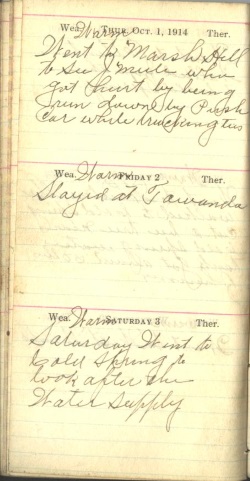 Wea. Warm THUR. OCT. 1, 1914 Ther.
Went to Marsh Hill
to See J Mule who
got hurt by being
run down by Push
Car while trucking ties
Wea. Warm FRIDAY 2 Ther.
Stayed at Towanda
Wea. Warm SATURDAY 3 Ther.
Saturday Went to
Cold Spring to
look after the
Water Supply